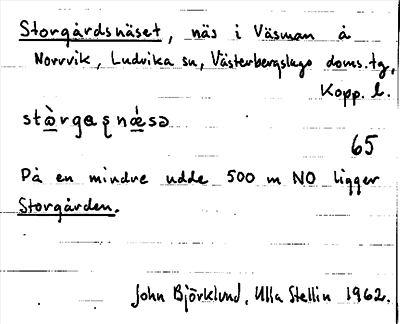 Storgårdsnäset, näs i Väsman å
Norrvik, Ludvika sn, Västerbergslags doms.tg,
Kopp. l.
stɑ̀rgɑʂnǽsə
65
På en mindre udde 500 m NO ligger
Storgården.
John Björklund, Ulla Stellin 1962.